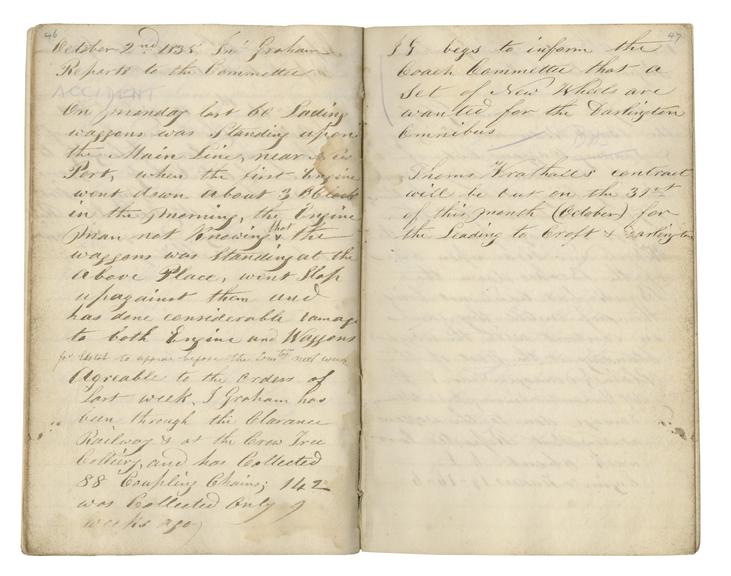 46
October 2nd 1835 Jn° Graham
Reports to the Committee
ACCIDENT
On Monday last 60 Lading
waggons was standing upon
the Main Line, near
Port, when the first Engine
went down about 3 OClock
in the morning, the Engine
man not knowing that the
waggons was standing at the
above Place, went Slap
up against them and
has done considerable Damage
to both Engine and Waggons
to appear before the Comtee next week
Agreable to the orders of
Last week. J Graham has
been through the Clarance
Railway & at the Crow Tree
Colliery, and has Collected
88 Coupling Chains; 142
was Collected Only 9
weeks ago
47
J G begs to inform the
Coach Committee that a
Set of New Wheels are
wanted for the Darlington
Omnibus
Thomas Wrathall's contract
will be out on the 31st
of this month (October) for
the Leading to Croft & Darlington